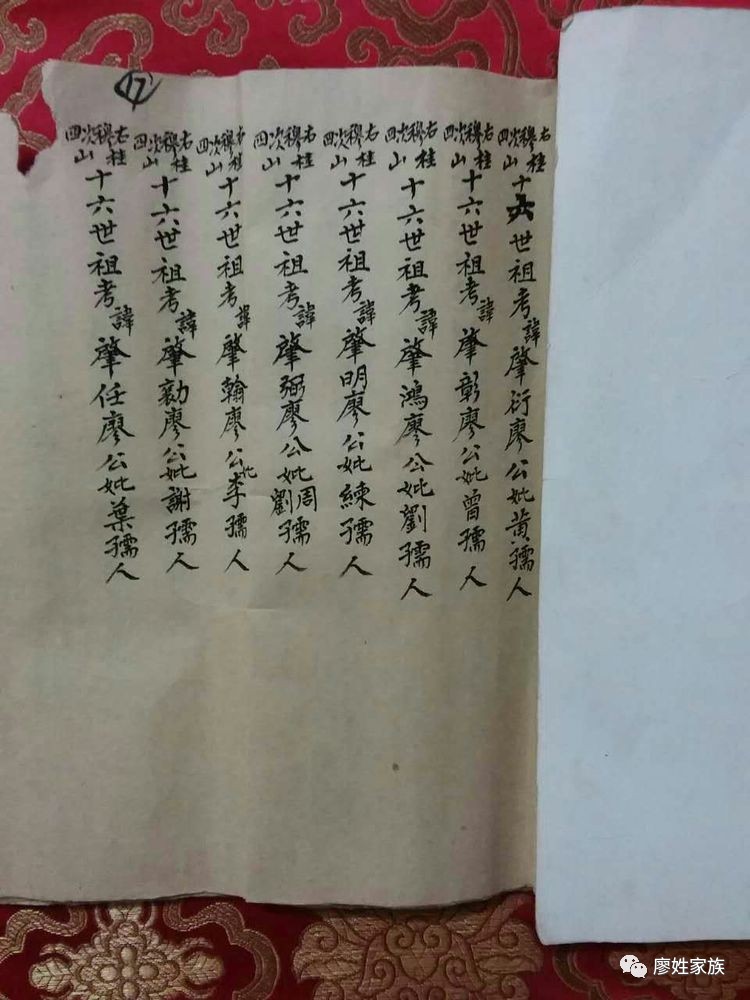 17
右桂穆次四山十六世祖考諱肇衍廖公妣黄孺人
右桂穆次四山十六世祖考諱肇彰廖公妣曾孺人
右桂穆次四山十六世祖考諱肇鴻廖公妣劉孺人
右桂穆次四山十六世祖考諱肇明廖公妣練孺人
右桂穆次四山十六世祖考諱肇弼廖公妣周劉孺人
右桂穆次四山十六世祖考諱肇翰廖公妣李孺人
右桂穆次四山十六世祖考諱肇廖公妣謝孺人
右桂穆次四山十六世祖考諱肇任廖公妣葉孺人
廖姓家族